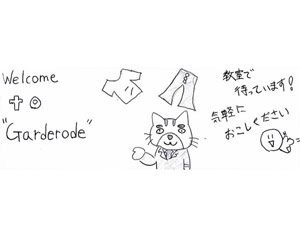 Welcome
to
"Garderode"
教室で
待っています!
気軽に
おこしください